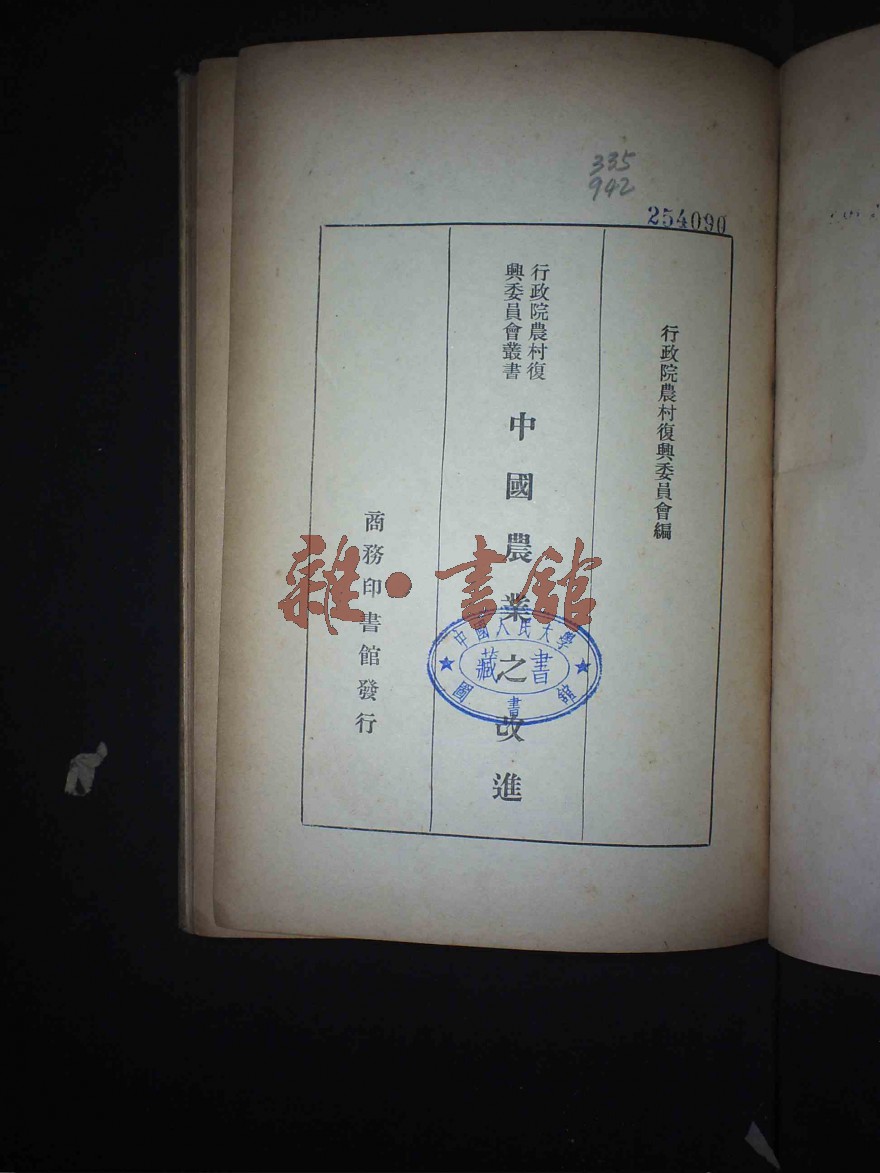 335
942
254090
行政院農村復興委員會編
行政院農村復
興委員會叢書
中國農業之改進
商務印書館發行
雜·書館
中國人民大學
藏書
圖書館